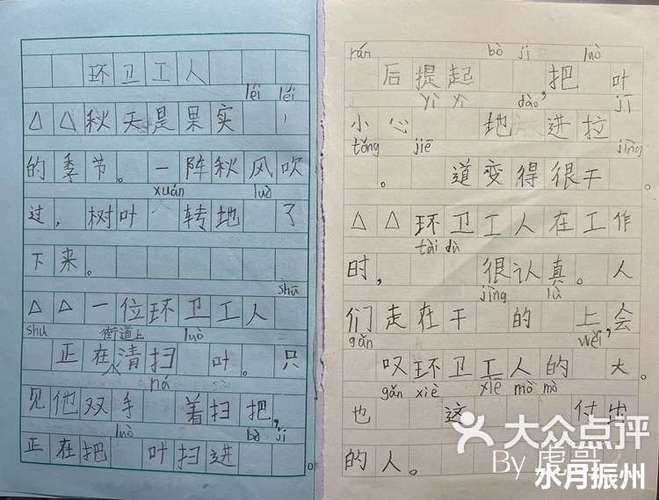 环卫工人
léi léi
△△秋天是果实
的季节。一阵秋风吹
xuán luò
过,树叶 转地 了
下来。
shū
△△一位环卫工人
shu 街道上 luò
正在清扫 叶。只
ná
见他双手 着扫把,
luò bò ji
正在把 叶扫进 。
rán bò ji luò
后提起 ,把 叶
yì yì dào, jī
小心 地 进拉
tǒng jiē jìng
。 道变得很干
△△环卫工人在工作
tài dù
时, 很认真。人
jìng lù
们走在干 的 上,会
gǎn wěi,
叹环卫工人的 大。
gǎn xiè xiē mò mò
也 这 付出
的人。
大众点评
By 虎哥
水月振州